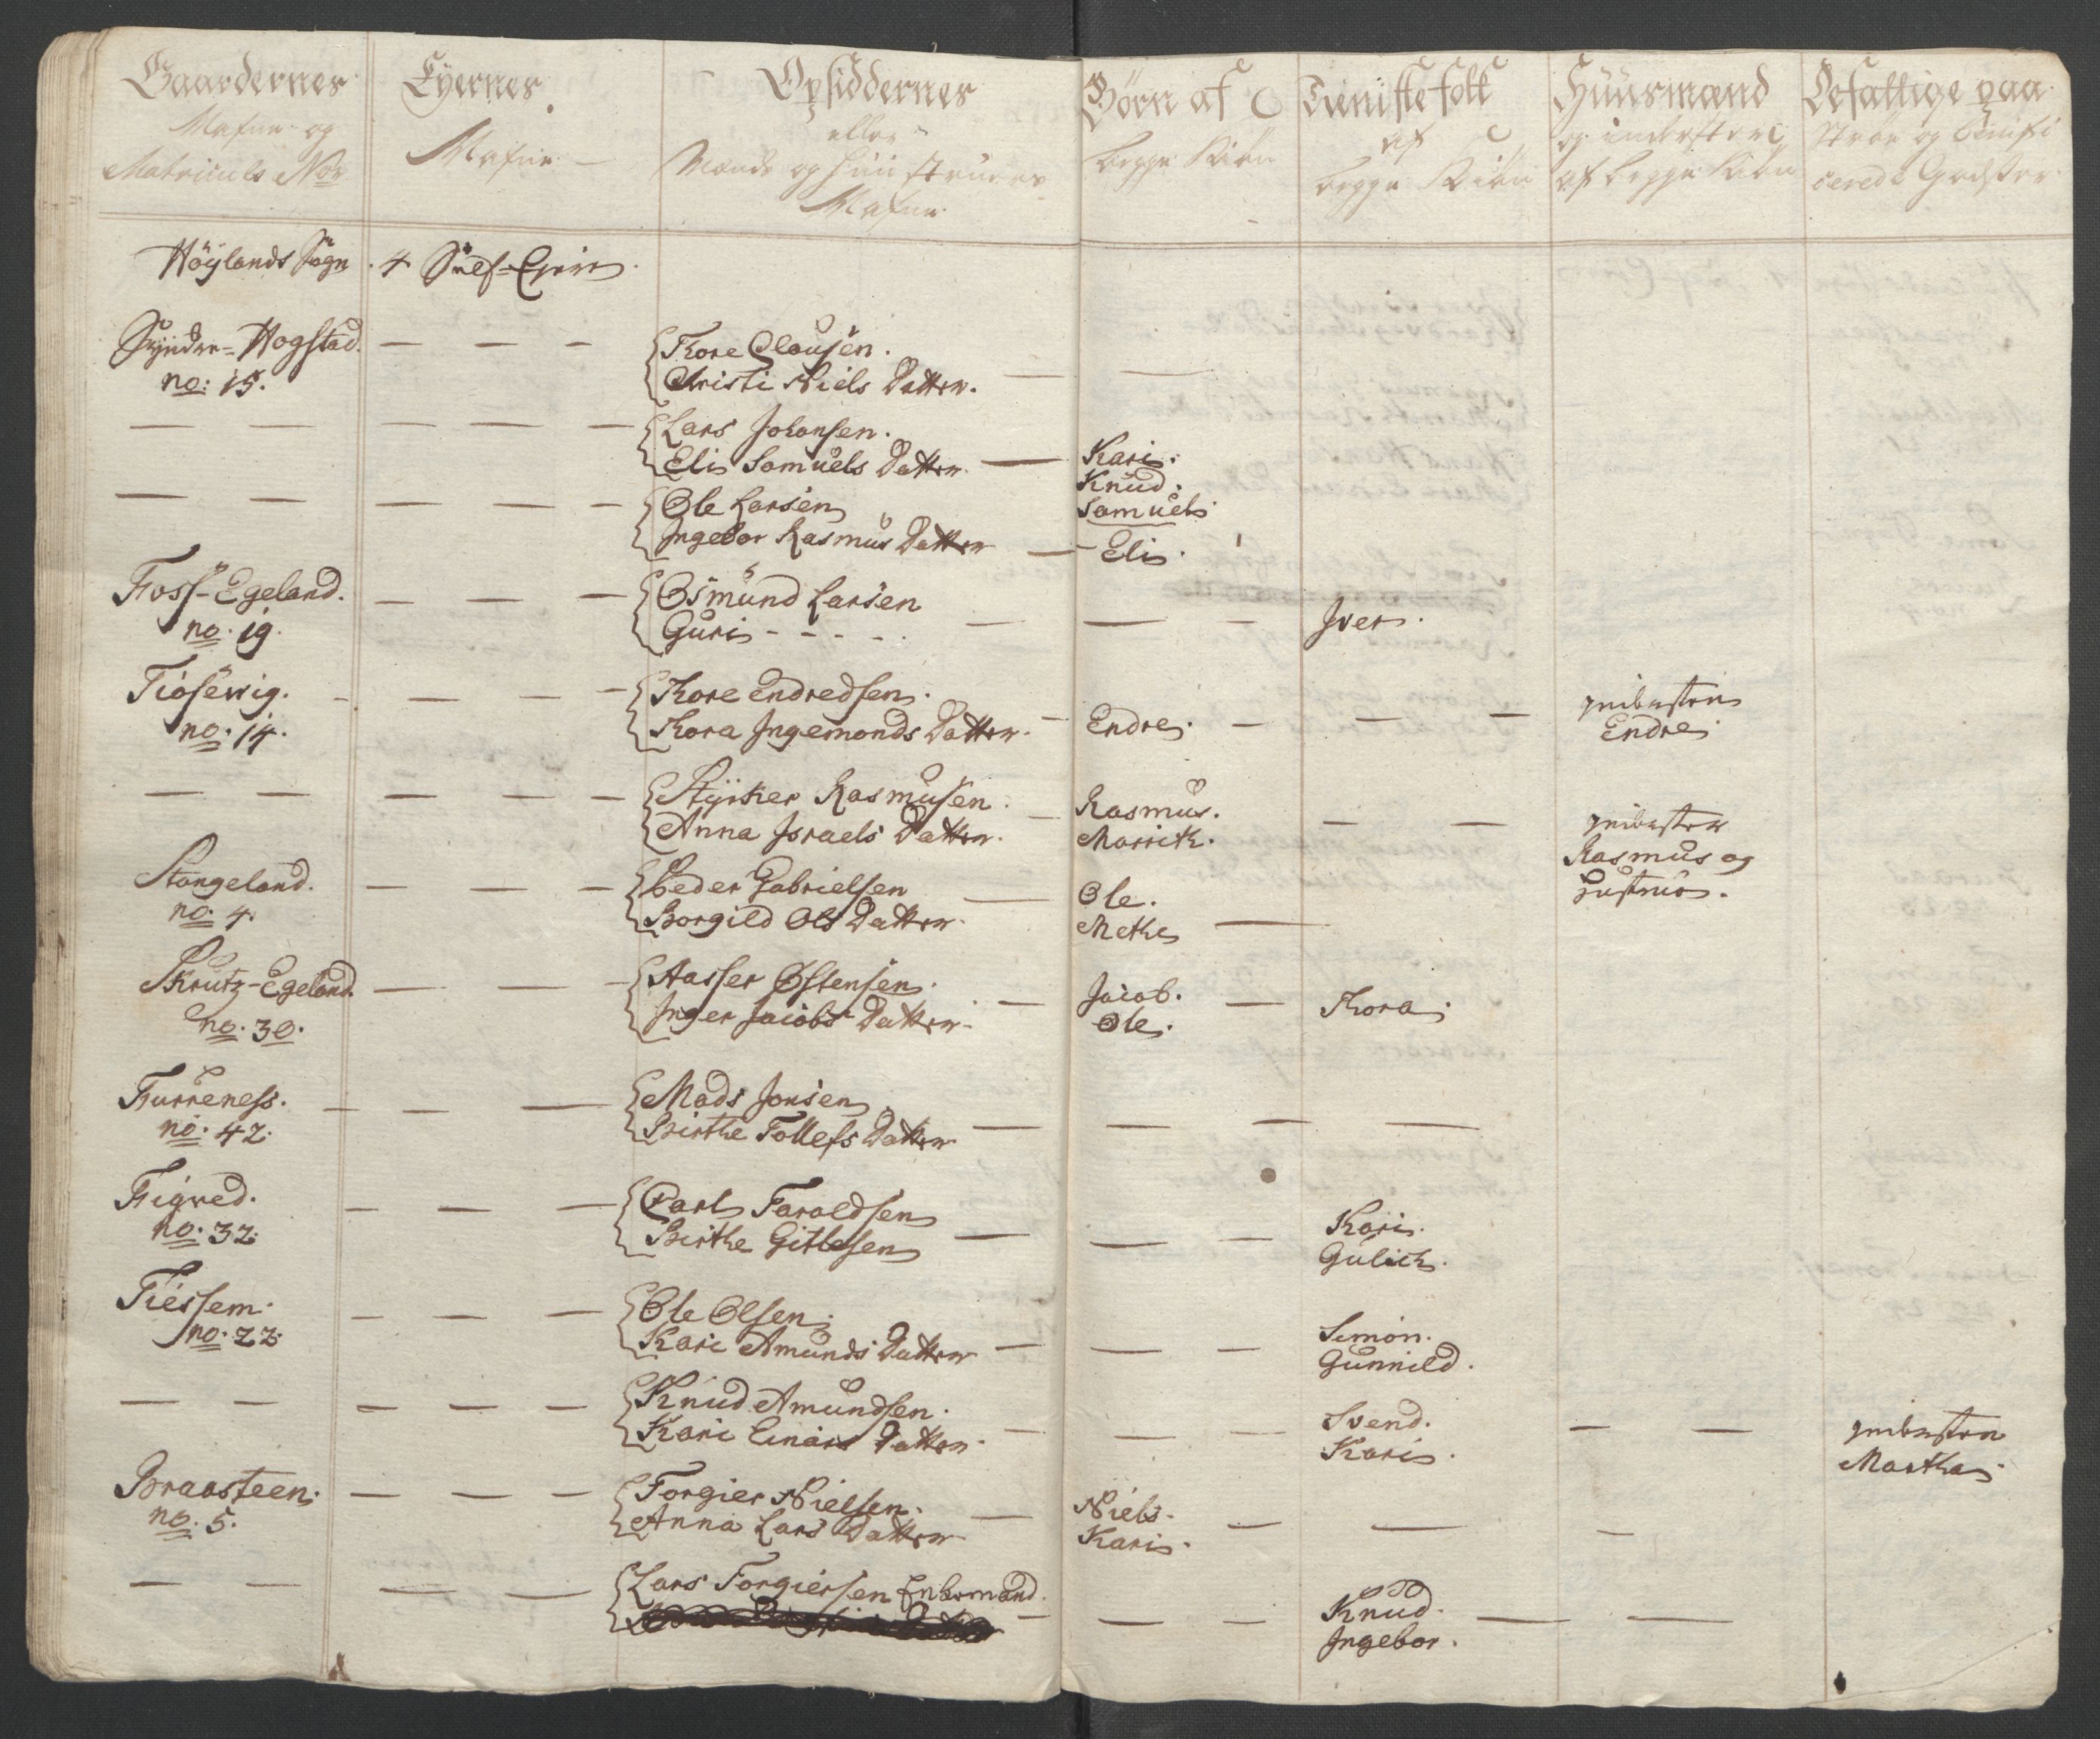 Gaardernes Nafne og Matriculs No:
Eyernes Nafne
Opsiddernes eller Mænds og Huustruers Nafne
Börn af begge Kiön
Tieniste folk af begge Kiön
Huusmænd og inderster af begge Kiön
paa
Höylands Sogn
4 Sielf-Eyere
Syndre-Hogstad.
no: 15.
Tore Clausen.
Christi Niels Datter.
Lars Johansen.
Eli Samuels Datter
Kari.
Knud.
Samuel.
Ole Larsen
Ingebor Rasmus Datter
Eli.
Foss-Egeland.
no. 19.
Osmund Larsen
Guri - - - -
Iver.
Tiösevig.
no. 14.
Tore Endredsen.
Tora Ingemonds Datter.
Endre.
inderster
Endre
Styrker Rasmusen
Anna Israels Datter.
Rasmus.
Marrith.
inderster
Rasmus og
Hustrue.
Stangeland.
no. 4.
Peder Gabrielsen
Borgild Ols Datter
Ole.
Methe
Skrutz-Egeland.
no. 30.
Aasser Östensen.
Inger Jacobs Datter
Jacob.
Ole.
Tora.
Furreness.
no. 42.
Mads Jonsen
Birthe Tollefs Datter
Figved.
no. 32.
Carl Taroldsen
Birthe Gitlesen
Kari.
Gulich.
Tiessem.
no. 22.
Ole Olsen.
Kari Amunds Datter
Simon.
Gunnild.
Knud Amundsen.
Kari Einars Datter
Svend.
Kari.
inderster
Martha.
Braasteen.
no. 5.
Torgier Nielsen.
Anna Lars Datter
Niels.
Kari.
Lars Torgiersen Enkemand.
Knud.
Ingebor.